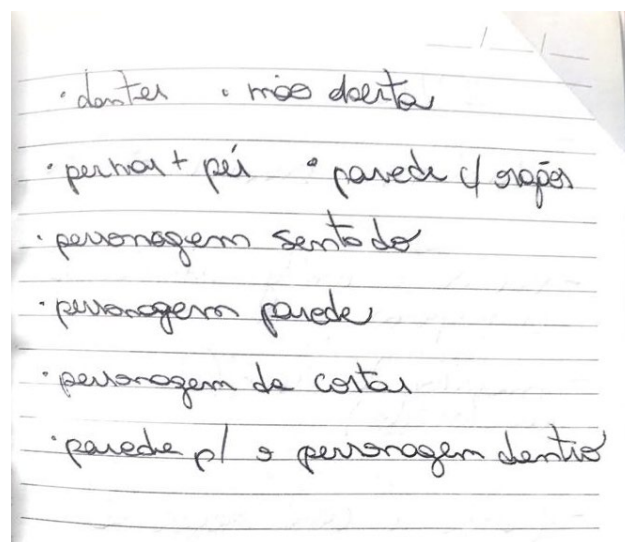 · dentes · mão aberta
· pernas + pés · parede c/ orapões
· personagem sentado
· personagem parede
· personagem de costas
· parede p/ o personagem dentro